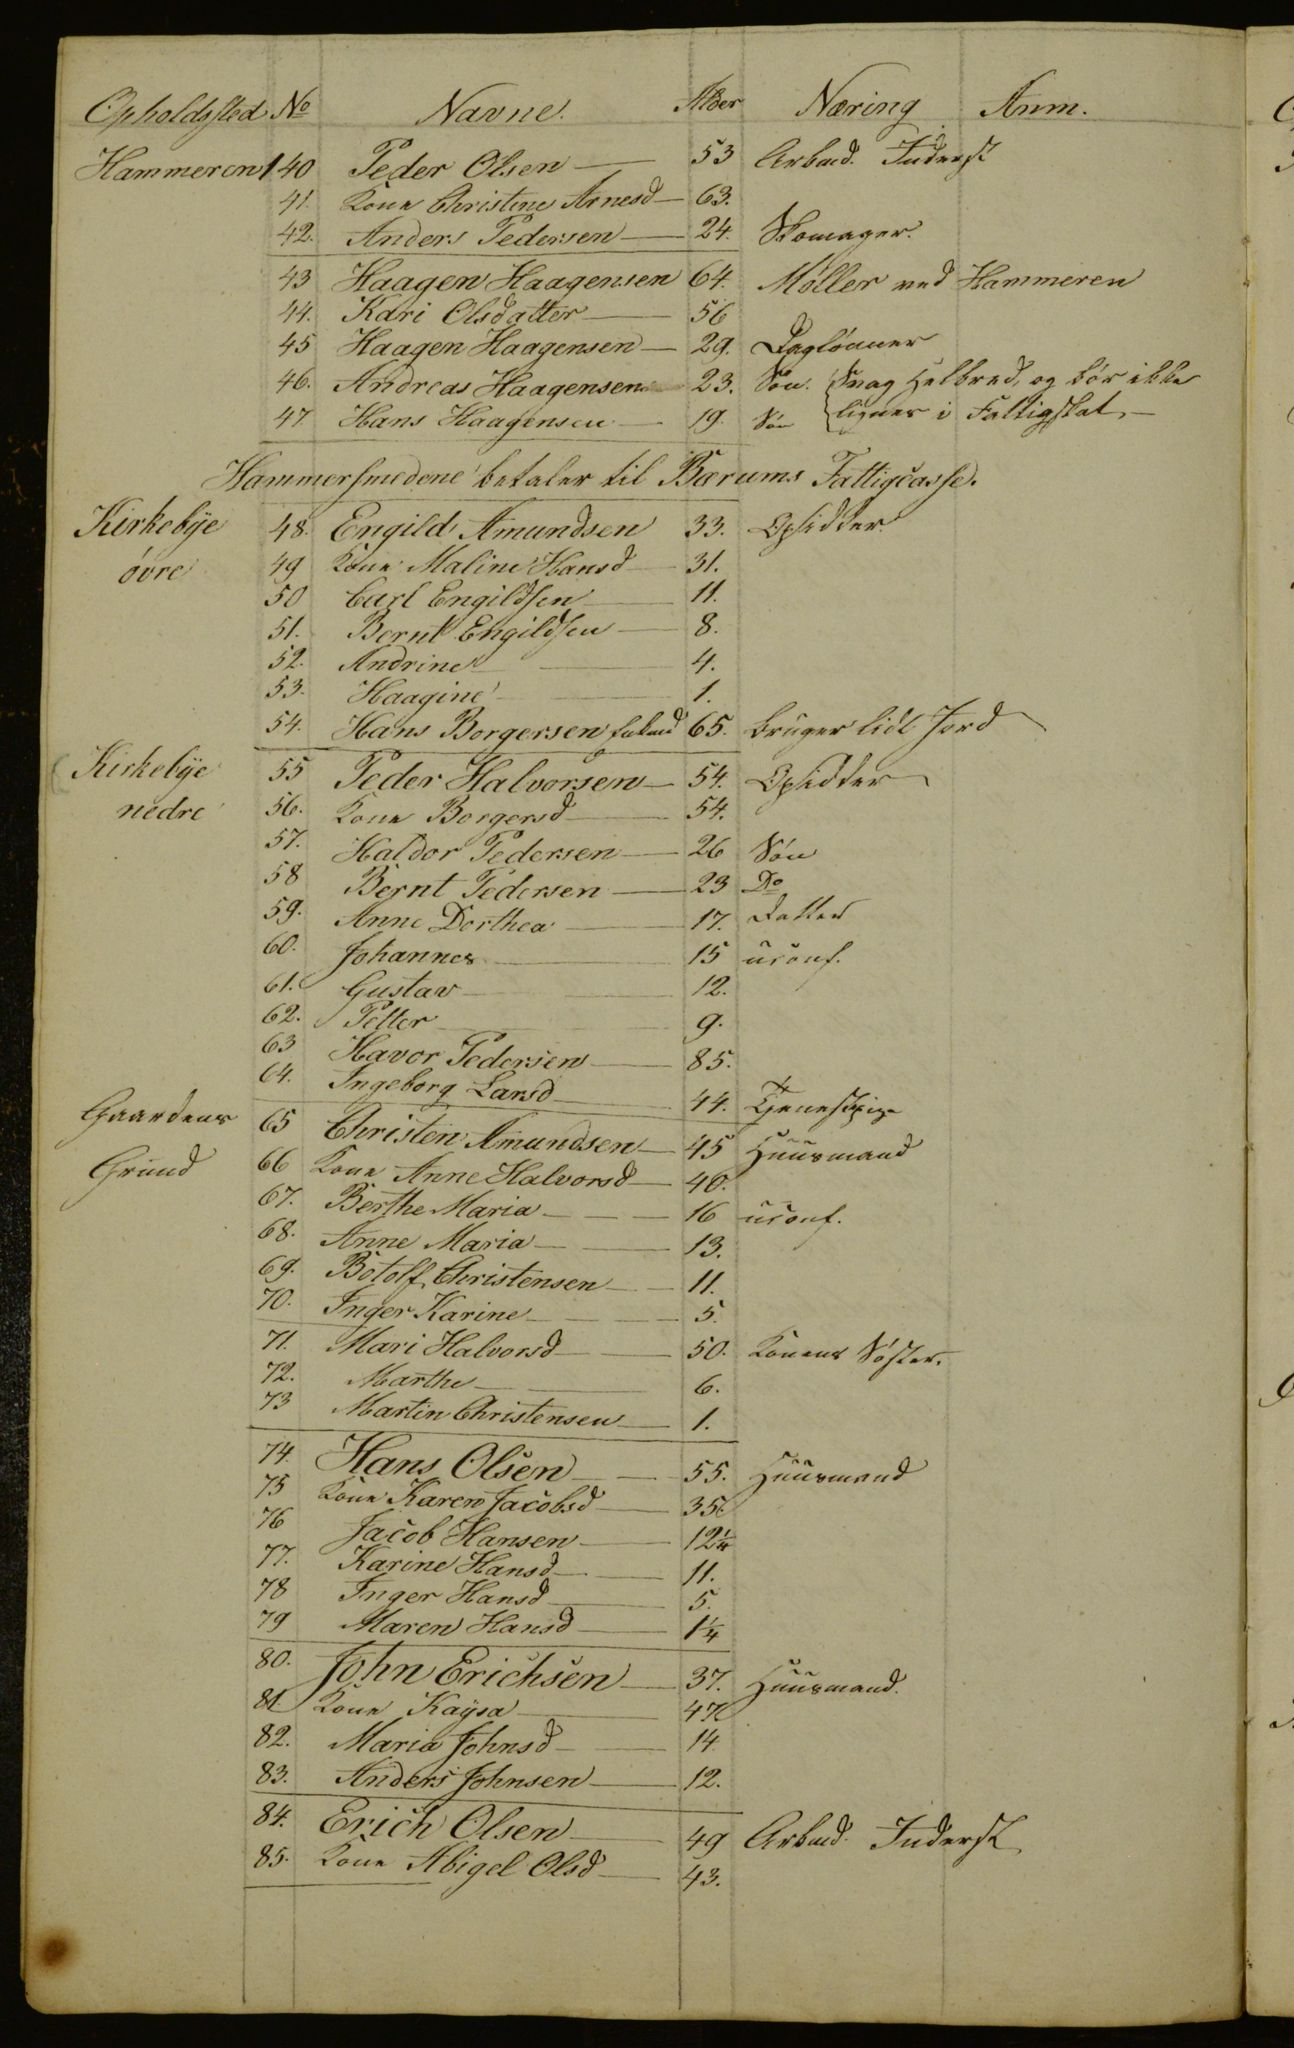 Opholdssted No Navne. Alder Næring Anm.
Hammeren 140 Peder Olsen — 53 Arbmd. Inderst
41. Kone Christine Arnesd — 63.
42. Anders Pedersen — 24. Skomager.
43 Haagen Haagensen 64. Møller ved Hammeren
44. Kari Olsdatter — 56
45 Haagen Haagensen — 29. Daglönner
46. Andreas Haagensen 23. Sön. Svag Helbred, og bör ikke
47 Hans Haagensen — 19. Sön lignes i Fattigskat. —
Hammersmedene betaler til Bærums Fattigcasse.
Kirkebÿe 48. Engild Amundsen 33. Opsidder
óvre 49 Kone Maline Hansd — 31.
50 Carl Engildsen — 11.
51. Bernt Engildsen — 8.
52. Andrine — 4.
53. Haagine — 1.
54. Hans Borgersen 65. bruger lidt Jord
Kirkebÿe 55 Peder Halvorsen — 54. Opsidder
nedre 56. Kone Borgersd — 54.
57. Haldor Pedersen — 26 Sön
58 Bernt Pedersen — 23 Do
59. Anne Dorthea — 17. Datter
60. Johannes — 15 uconf.
61. Gustav — 12.
62. Petter — 9.
63 Havor Pedersen — 85.
64. Ingeborg Larsd — 44. Tjenestpige
Gaardens 65 Christen Amundsen — 45 Huusmand
Grund 66 Kone Anne Halvorsd — 40.
67. Berthe Maria — 16 uconf.
68. Anne Maria — 13.
69. Botolf Christensen — 11.
70. Inger Karine — 5.
71. Mari Halvorsd — 50. Konens Söster.
72. Marthe — 6.
73 Martin Christensen — 1.
74. Hans Olsen — 55. Huusmand
75 Kone Karen Jacobsd — 35.
76 Jacob Hansen — 12¼
77. Karine Hansd — 11.
78 Inger Hansd — 5.
79 Maren Hansd — 1¼
80. John Erichsen — 37. Huusmand.
81 Kone Kaÿsa — 47.
82. Maria Johnsd — 14
83. Anders Johnsen — 12.
84. Erich Olsen — 49 Arbmd. Inderst
85. Kone Abigel Olsd — 43.